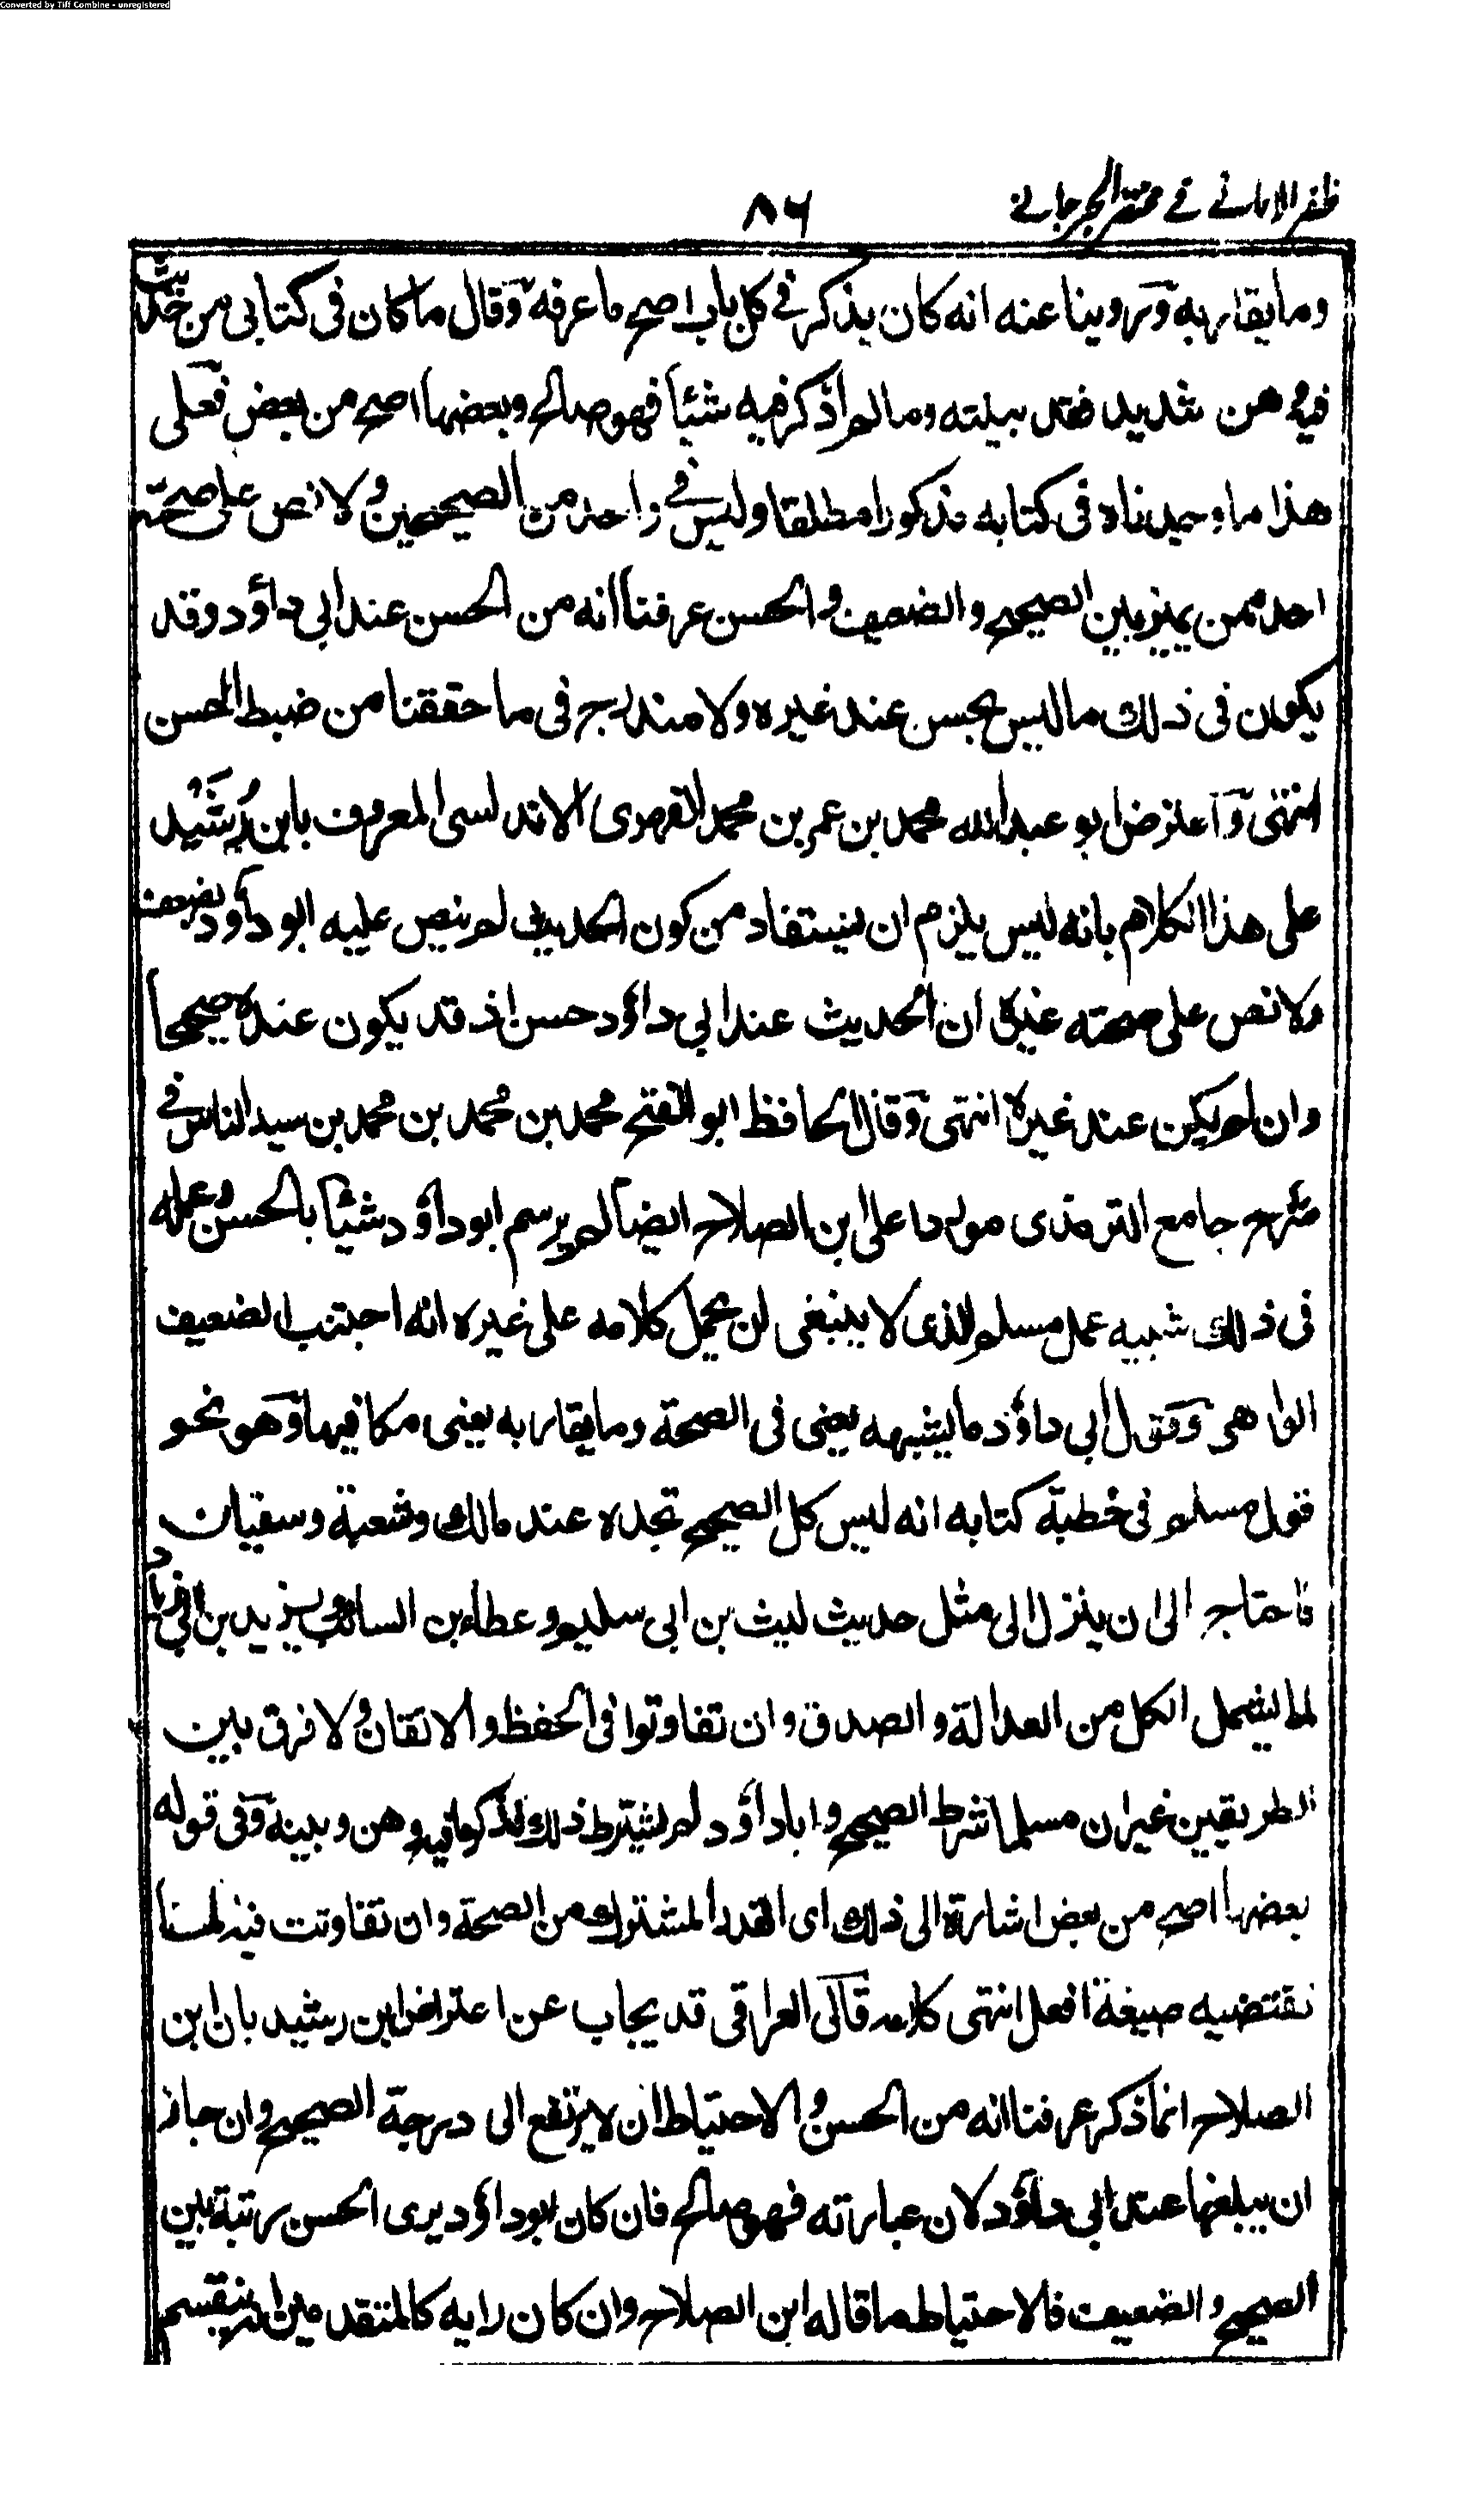 Converted by Tiff Combine - unregistered
ظفر الامانے فے مختصر الجرجانے
٨٦
وما يقاربه وروينا عنه انه كان يذكر فے كل باب اصح ما عرفه وقال ما كان فى كتابى من حديث
فيه وهن شديد فقد بينته وما لم اذكر فيه شيئا فهو صالح وبعضها اصح من بعض فعلى
هذا ما وجدناه فى كتابه مذكورا مطلقا وليس فے واحد من الصحيحين ولا نص على صحته
احد ممن يميز بين الصحيح والضعيف والحسن عرفنا انه من الحسن عند ابى داؤد وقد
يكون فى ذلك ما ليس بحسن عند غيره ولا مندرج فى ما حققنا من ضبط الحسن
انتهى واعترض ابو عبد الله محمد بن عمر بن محمد الفهرى الاندلسى المعروف بابن رُشَيْد
على هذا الكلام بانه ليس يلزم ان يستفاد من كون الحديث لم ينص عليه ابو داؤد بضعف
ولا نص على صحته غيره ان الحديث عند ابى داؤد حسن اذ قد يكون عنده صحيحا
وان لم يكن عند غيره انتهى وقال الحافظ ابو الفتح محمد بن محمد بن محمد بن سيد الناس فے
شرح جامع الترمذى موردا على ابن الصلاح ايضا لم يرسم ابو داؤد شيئا بالحسن وعمله
فى ذلك شبيه عمل مسلم الذى لا ينبغى ان يحمل كلامه على غيره انه اجتنب الضعيف
الواهى وقول ابى داؤد ما يشبهه يعنى فى الصحة وما يقاربه يعنى مكا فيها وهو نحو
قول مسلم فى خطبة كتابه انه ليس كل الصحيح تجده عند مالك وشعبة وسفيان
فاحتاج الى ان ينزل الى مثل حديث ليث بن ابى سليم وعطاء بن السائب ويزيد بن ابى زياد
لما يشمل الكل من العدالة والصدق وان تفاوتوا فى الحفظ والاتقان ولا فرق بين
الطريقين غير ان مسلما شرط الصحيح وابا داؤد لم يشترط ذلك فذكر ما فيه وهن وبينه وفى قوله
بعضها اصح من بعض اشارة الى ذلك اى القدر المشترك من الصحة وان تفاوتت فيه لما
تقتضيه صيغة افعل انتهى كلامه قال العراقى قد يجاب عن اعتراض ابن رشيد بان ابن
الصلاح انما ذكر عرفنا انه من الحسن والاحتياط ان لا يرتفع الى درجة الصحيح وان جاز
ان يبلغها عند ابى داؤد لان عبارته فهو صالح فان كان ابو داؤد يرى الحسن رتبة بين
الصحيح والضعيف فالاحتياط ما قاله ابن الصلاح وان كان رايه كالمتقدمين انه ينقسم